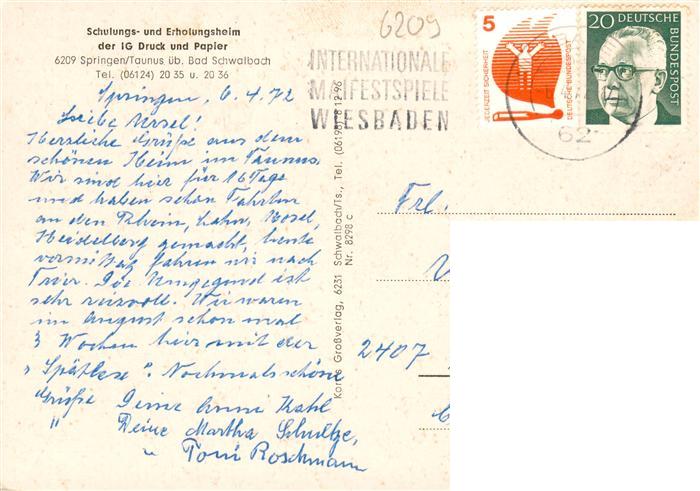 Schulungs- und Erholungsheim
der IG Druck und Papier
6209 Springen/Taunus üb. Bad Schwalbach
Tel. (06124) 20 35 u. 20 36
6209
INTERNATIONALE
MAIFESTSPIELE
WIESBADEN
5
JEDERZEIT SICHERHEIT
DEUTSCHE BUNDESPOST
20 DEUTSCHE
BUNDESPOST
62
Springen, 6.4.72
Liebe Ursel!
Herzliche Grüße aus dem
schönen Heim im Taunus.
Wir sind hier für 16 Tage
und haben schon Fahrten
an den Rhein, Lahn, Mosel,
Heidelberg gemacht, heute
vormittag fahren wir nach
Trier. Die Umgegend ist
sehr reizvoll. Wir waren
im August schon mal
3 Wochen hier mit der
"Spätlese". Nochmals schöne
Grüße Deine Anni Kahl
" Deine Martha Schultze,
u Toni Roschmann
Karos Großverlag, 6231 Schwalbach/Ts., Tel. (06196) 8 12 96
Nr. 8298 c
Frl.
2407